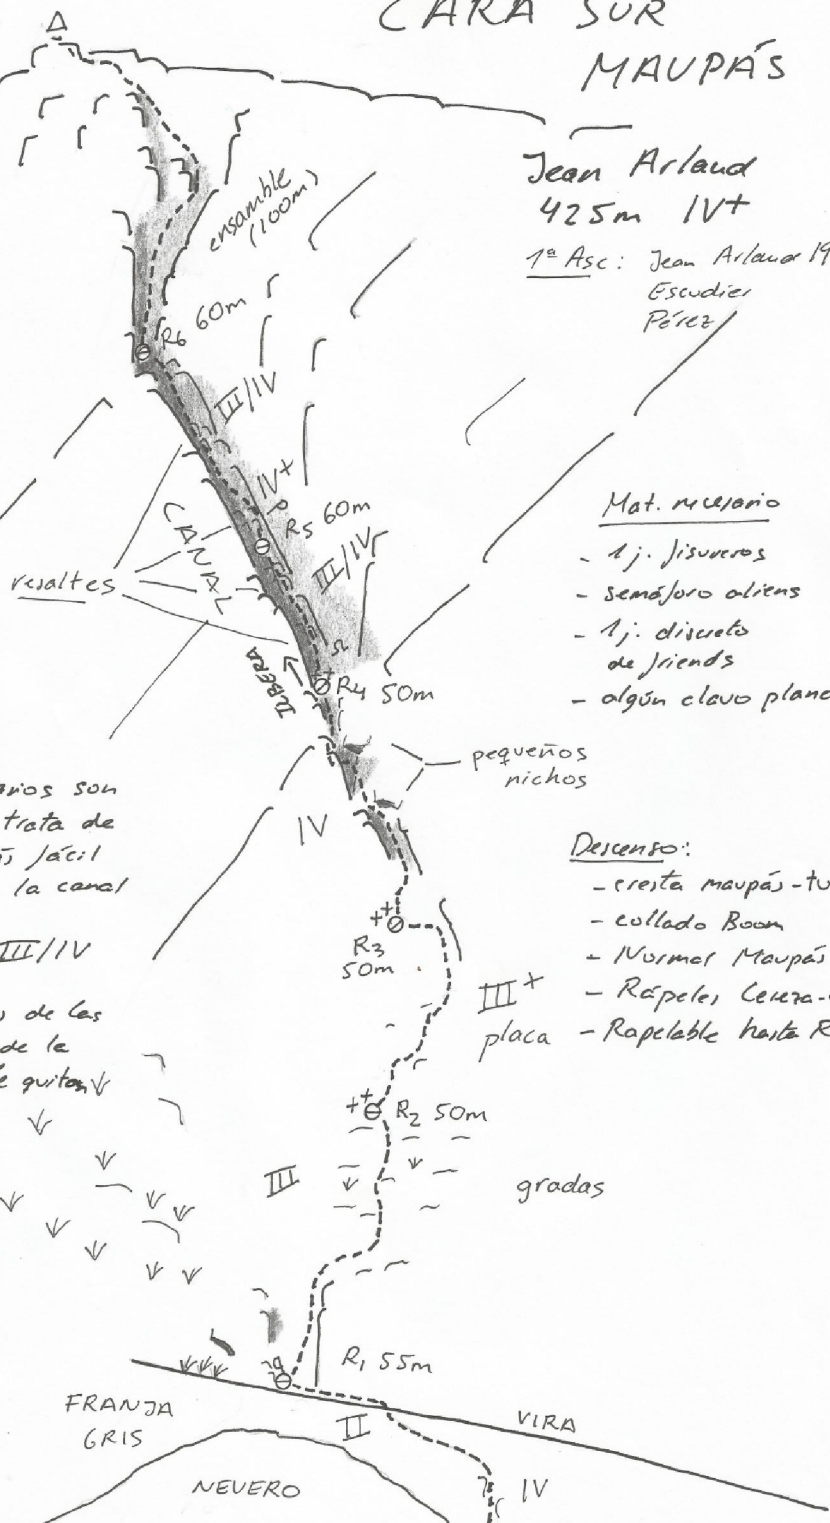 CARA SUR
MAUPÁS
Jean Arlaud
425m IV+
1ª Asc: Jean Arlaud 19
Escudier
Pérez
ensamble
(100m)
R6 60m
III/IV
IV+
R5 60m
III/IV
CANAL
resaltes
TUBERA
R4 50m
pequeños
nichos
IV
Mat. necesario
- 1 j. fisureros
- semáforo aliens
- 1 j. discreto
de friends
- algún clavo plano
arios son
trata de
s fácil
la canal
III/IV
s de las
de la
e quitan
Descenso:
- cresta maupás-tu
- collado Boom
- Normal Maupás
- Rápeles Cereza-
- Rapelable hasta R
R3
50m
III+
placa
R2 50m
III
gradas
R1 55m
FRANJA
GRIS
II
VIRA
NEVERO
IV